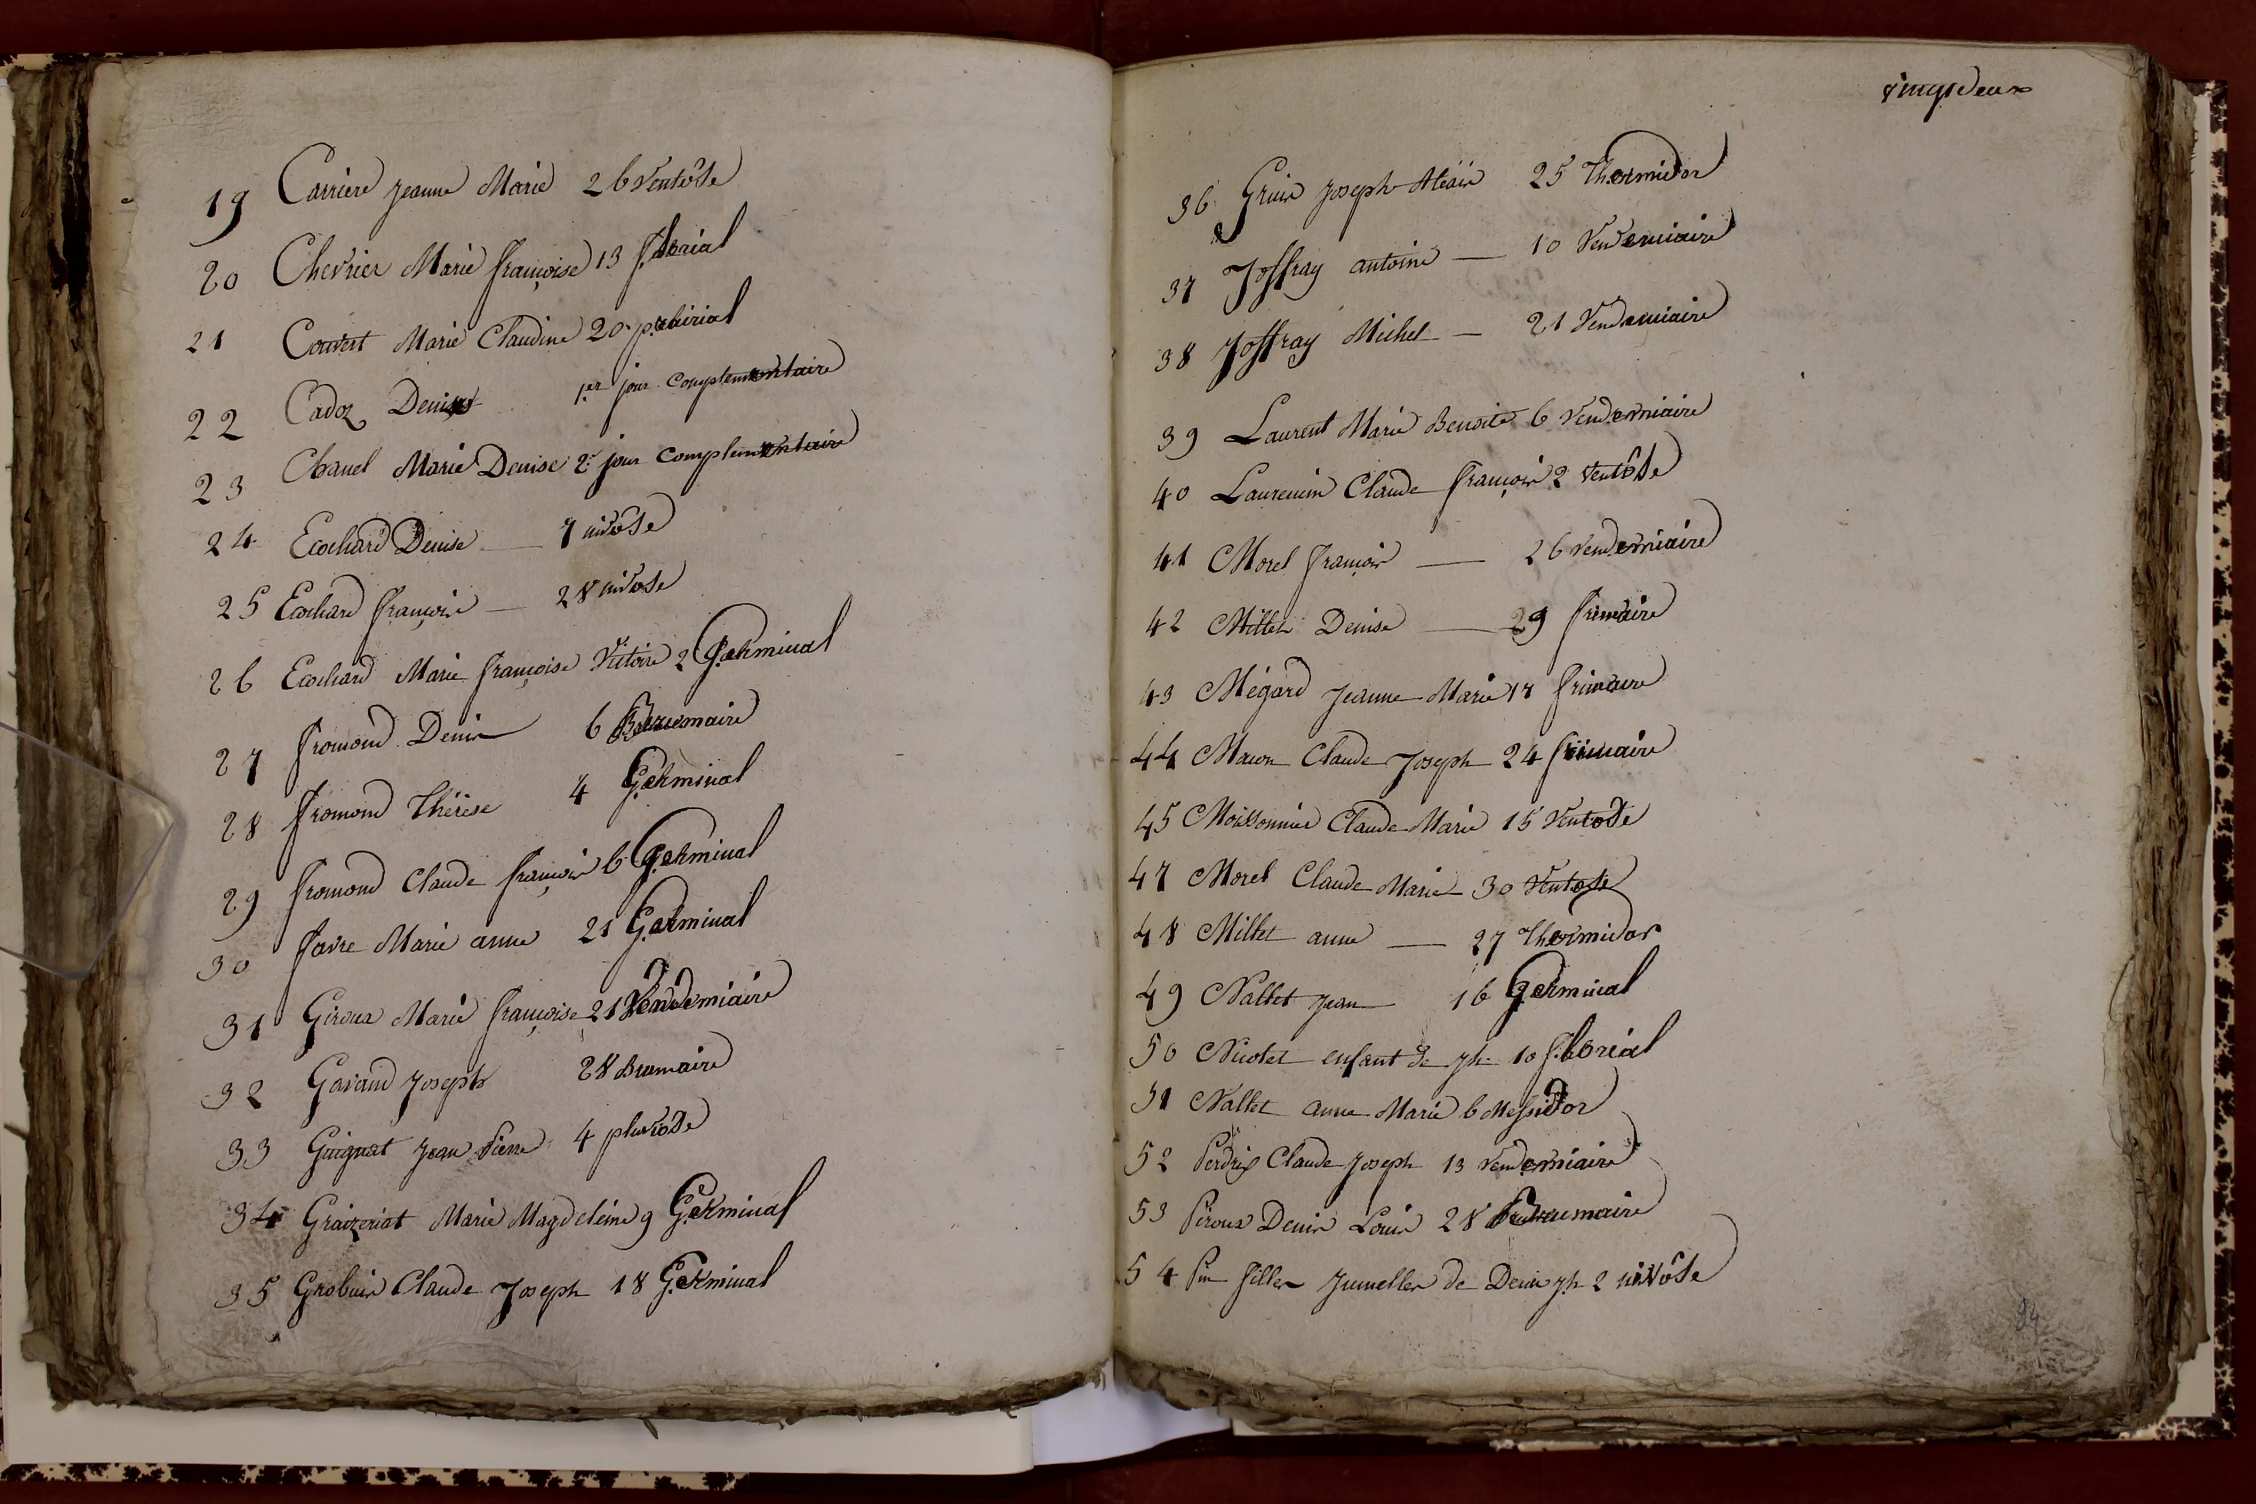 19 Carriere Jeanne Marie 26 Ventôse
20 Chevrier Marie françoise 13 floreal
21 Convert Marie Claudine 20 prairial
22 Cadoz Denise 1er jour complementaire
23 Chanel Marie Denise 2e jour complementaire
24 Ecochard Denise — 7 nivôse
25 Ecochard françoise — 28 nivose
26 Ecochard Marie françoise Victoire 2 Germinal
27 fromond Denis 6 Brumaire
28 fromond Thérèse 4 Germinal
29 fromond Claude françois 6 Germinal
30 favre Marie anne 21 Germinal
31 Giroux Marie françoise 21 Vendemiaire
32 Gavand Joseph 28 Brumaire
33 Guignat Jean Pierre 4 pluviôse
34 Graizeriat Marie Magdeleine 9 Germinal
35 Grobuis Claude Joseph 18 Germinal
vingtdeux
36 Joseph 25 Thermidor
37 Joffray antoine — 10 Vendemiaire
38 Joffray Michel — 21 Vendemiaire
39 Laurent Marie Benoite 6 Vendemiaire
40 Laurencin Claude françois 2 Ventôse
41 Morel françois — 26 Vendemiaire
42 Millet Denise — 29 frimaire
43 Mégard Jeanne Marie 17 frimaire
44 Macon Claude Joseph 24 frimaire
45 Moissonnier Claude Marie 15 Ventose
47 Morel Claude Marie 30 Ventose
48 Millet anne — 27 Thermidor
49 Nallet Jean 16 Germinal
50 Nicolet enfant de jh 10 floreal
51 Nallet anne Marie 6 Messidor
52 Perdrix Claude Joseph 13 Vendemiaire
53 Piroux Denis Louis 28 Brumaire
54 Pin filles Jumelles de Denis jh 2 nivôse